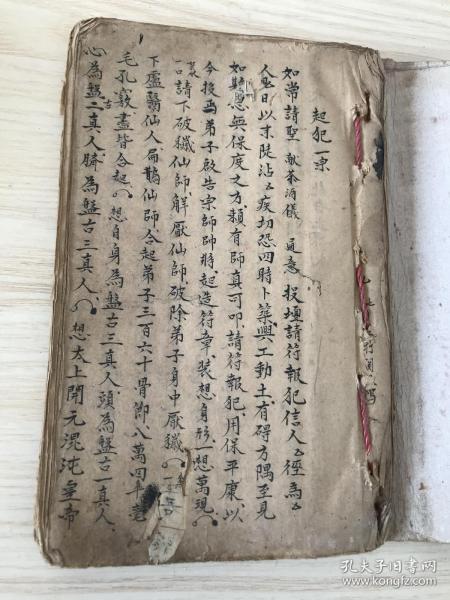 起犯一宗
如常請聖 獻茶酒儀 具意 投壇請符報犯信人厶徑為厶
人厶日以來陡沾厶疾切恐四時卜築興工動土有碍方隅至見
如斯慮無保度之方賴有師真可叩請符報犯用保平康以
今後焉弟子啟告宗師師將起造符章裝想身形想萬現
一口請下破穢仙師解厭仙師破除弟子身中厭穢
下盧醫仙人扁鵲仙師合起弟子三百六十骨節八萬四千毫
毛孔竅盡皆合起 想自身為盤古三真人頭為盤古一真人
心為盤二真人臍為盤古三真人 想太上開元混沌皇帝
古
孔夫子旧书网
www.kongfz.com